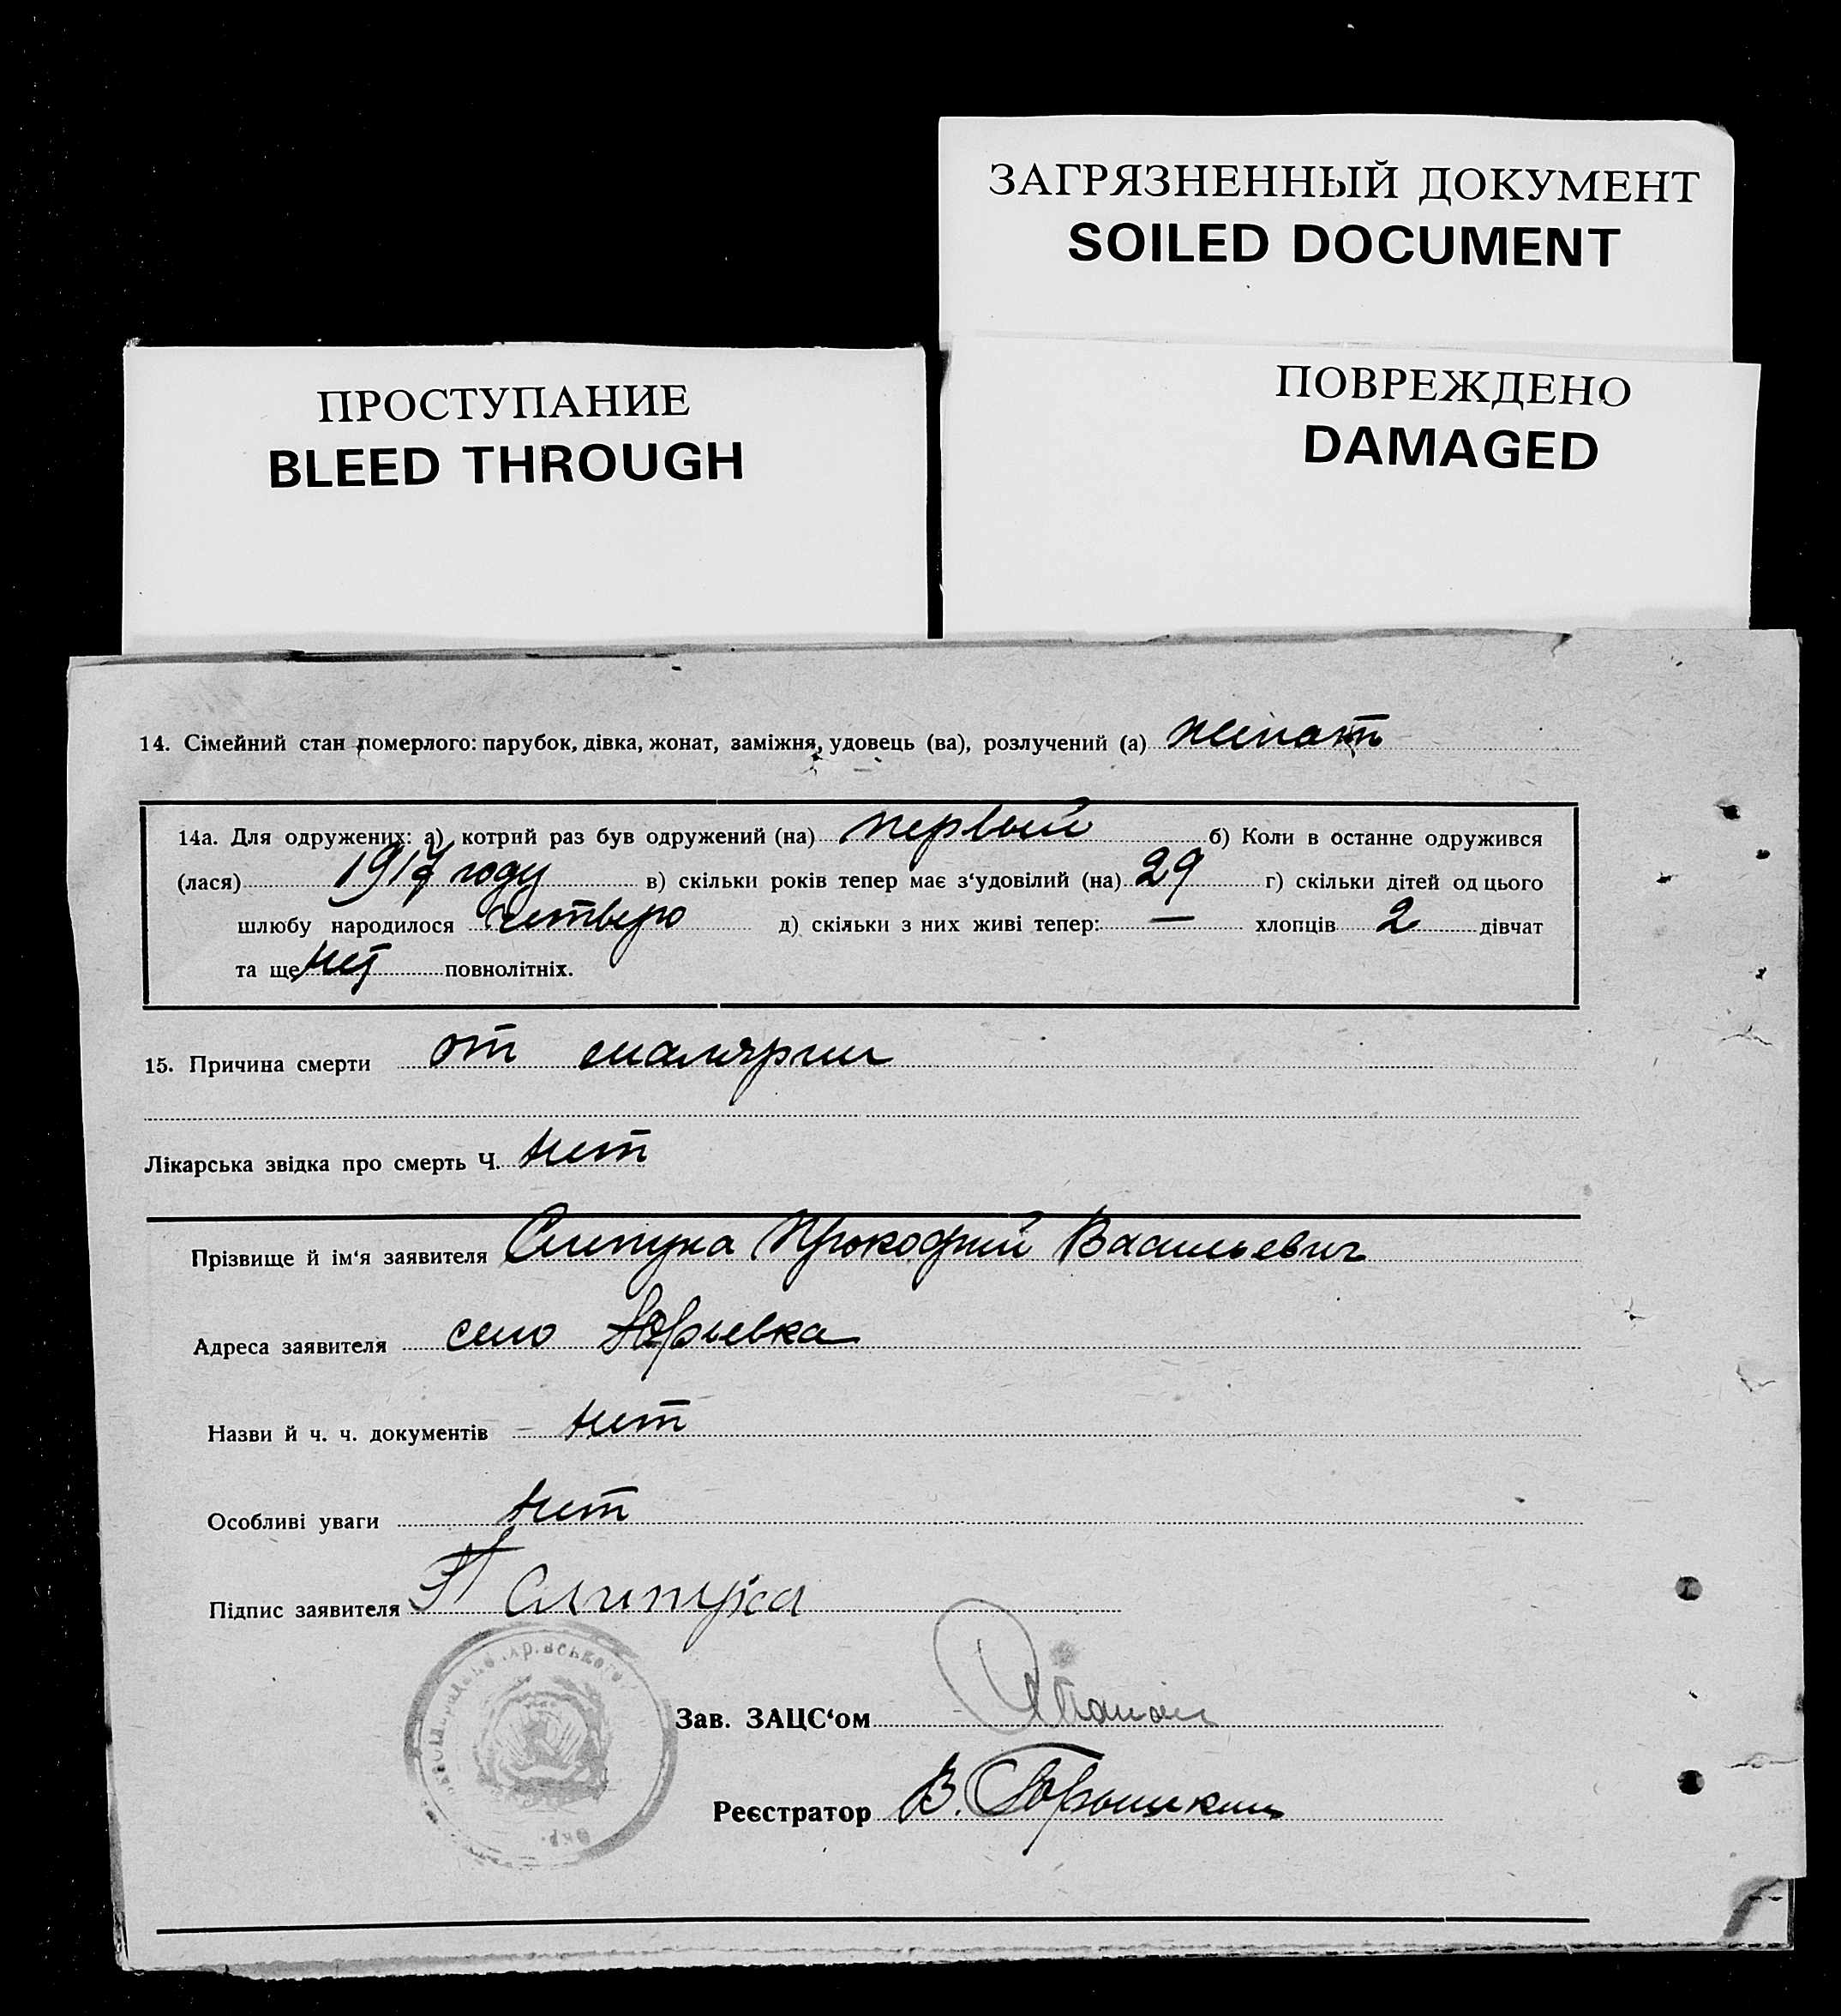 ЗАГРЯЗНЕННЫЙ ДОКУМЕНТ
SOILED DOCUMENT
ПРОСТУПАНИЕ
BLEED THROUGH
ПОВРЕЖДЕНО
DAMAGED
14. Сімейний стан померлого: парубок, дівка, жонат, заміжня, удовець (ва), розлучений (а) женат
14а. Для одружених: а) котрий раз був одружений (на) первый б) Коли в останне одружився
(лася) 1917 году в) скільки років тепер має з‘удовілий (на) 29 г) скільки дітей од цього
шлюбу народилося четверо д) скільки з них живі тепер: — хлопців 2 дівчат
та ще нет повнолітніх.
15. Причина смерти от малярии
Лікарська звідка про смерть Ч. нет
Прізвище й ім‘я заявителя Слипуха Прокофий Васильевич
Адреса заявителя село Юрьевка
Назви й ч. ч. документів нет
Особливі уваги нет
Підпис заявителя П Слипуха
Зав. ЗАЦС‘ом
Реєстратор В.